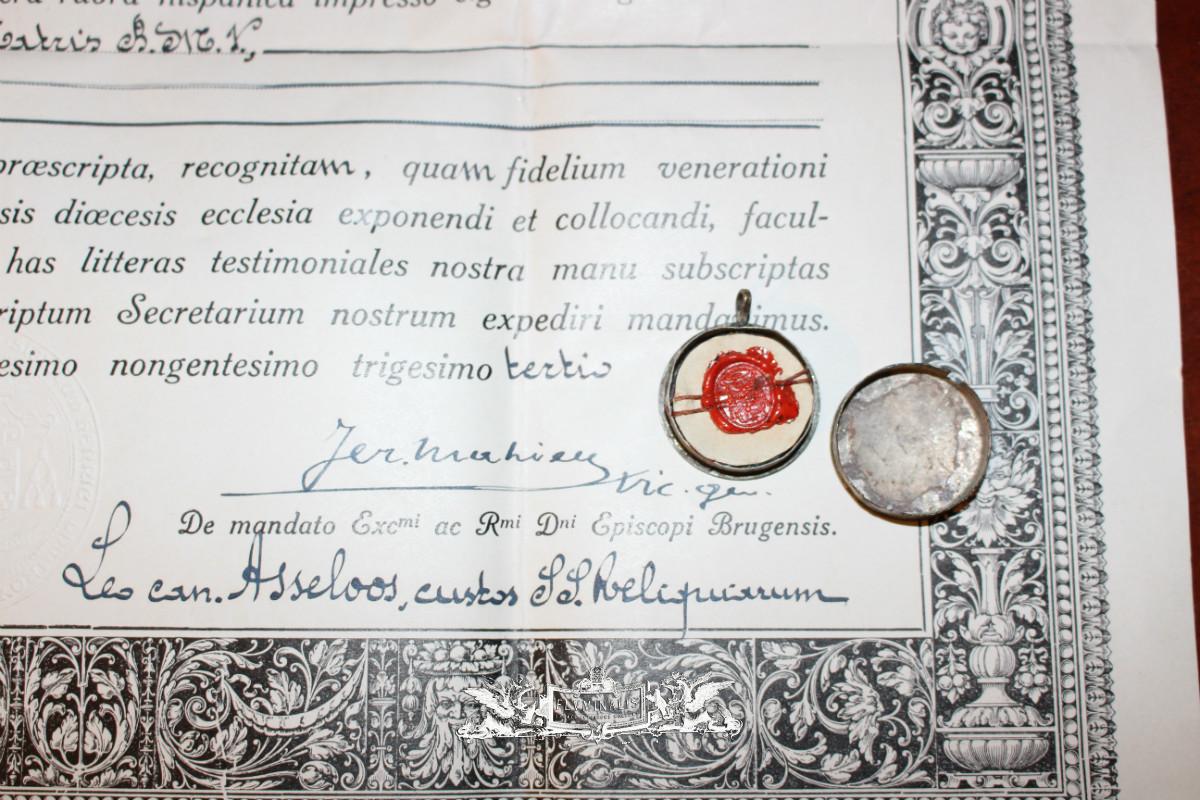 cera rubra hispanica impresso
Matris B.M.V.,
præscripta, recognitam, quam fidelium venerationi
sis diœcesis ecclesia exponendi et collocandi, facul-
has litteras testimoniales nostra manu subscriptas
riptum Secretarium nostrum expediri mandavimus.
esimo nongentesimo trigesimo tertio
Jer. Mahieu
Vic. gen.
De mandato Excmi ac Rmi Dni Episcopi Brugensis.
Leo can. Asseloos, custos SS. Reliquiarum